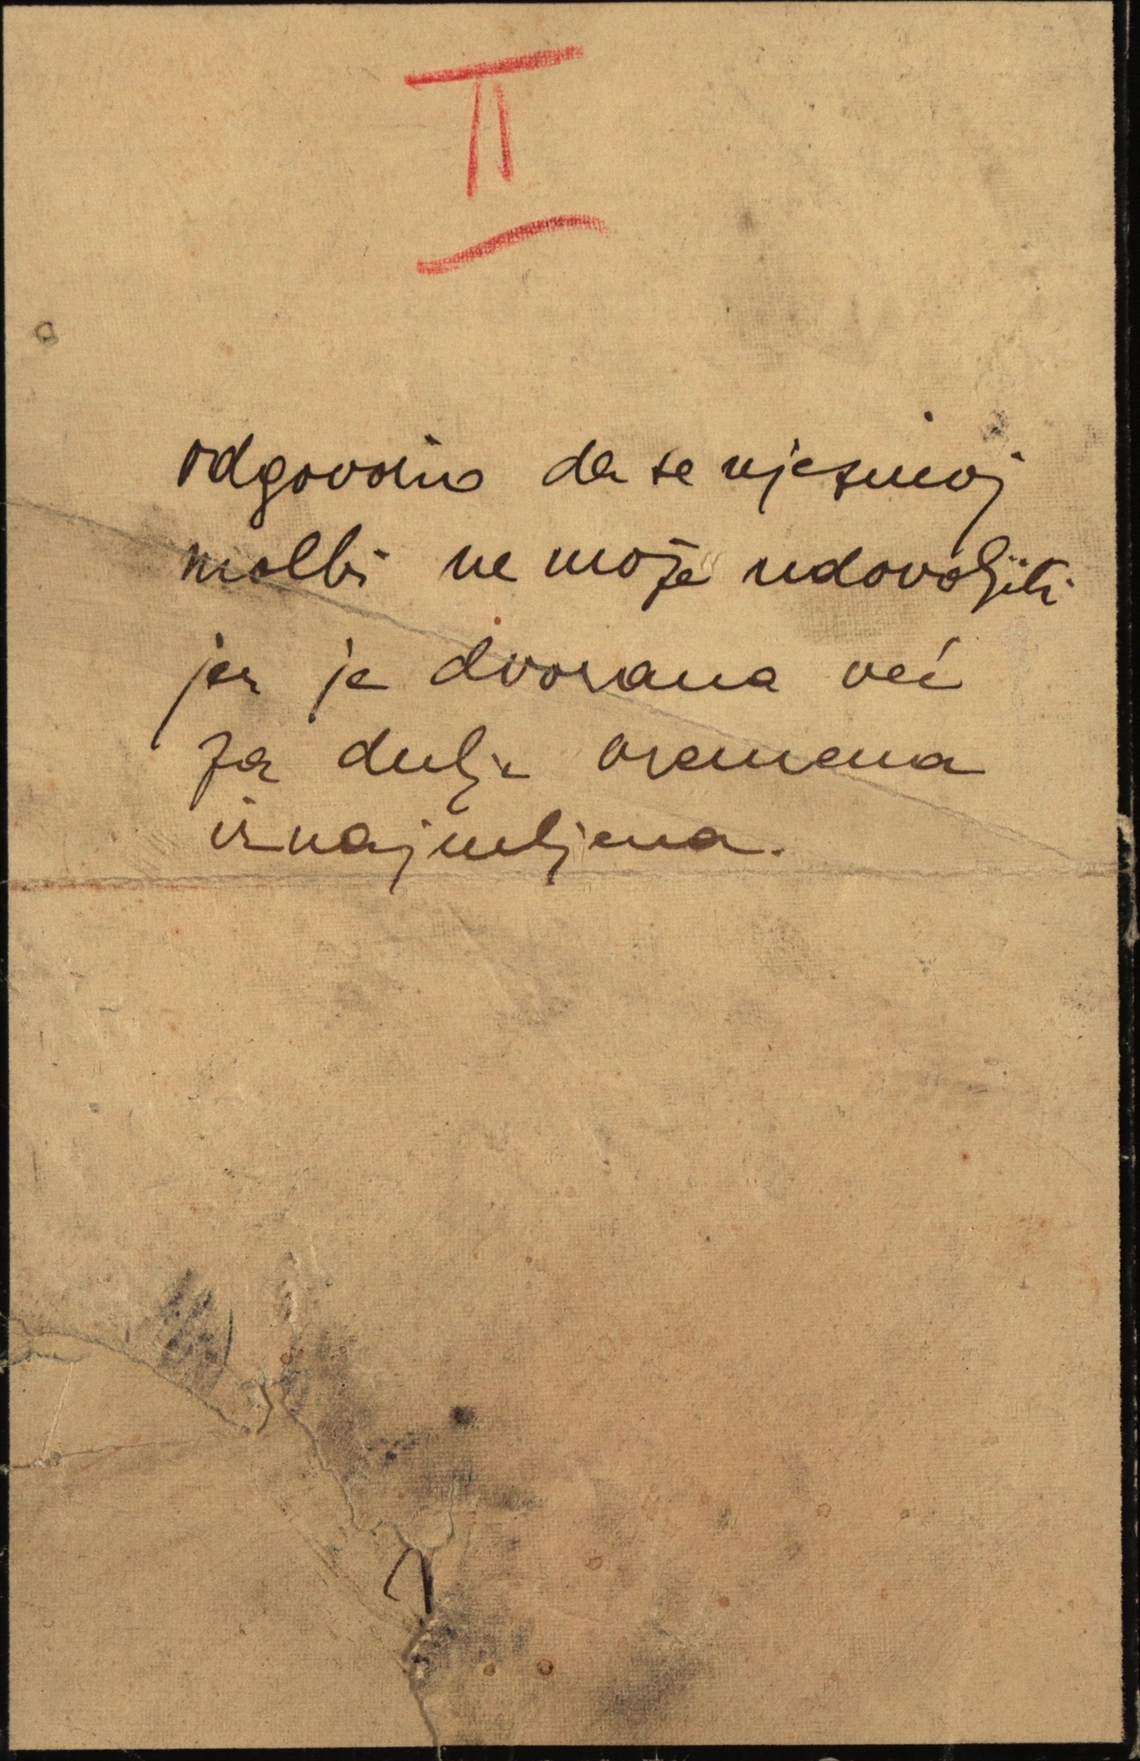 II
odgovorio da se njezinoj
molbi ne može udovoljiti
jer je dvorana već
za dulje vremena
iznajmljena.